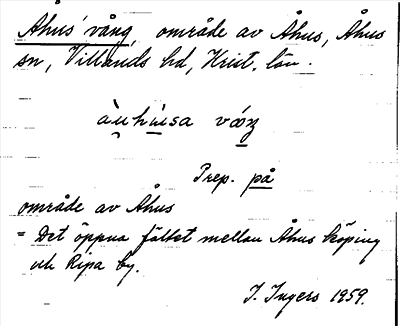 Åhus' vång, område av Åhus, Åhus
sn, Villands hd, Krist. län.
Prep. på
område av Åhus
= Det öppna fältet mellan Åhus köping
och Ripa by.
I. Ingers 1959.